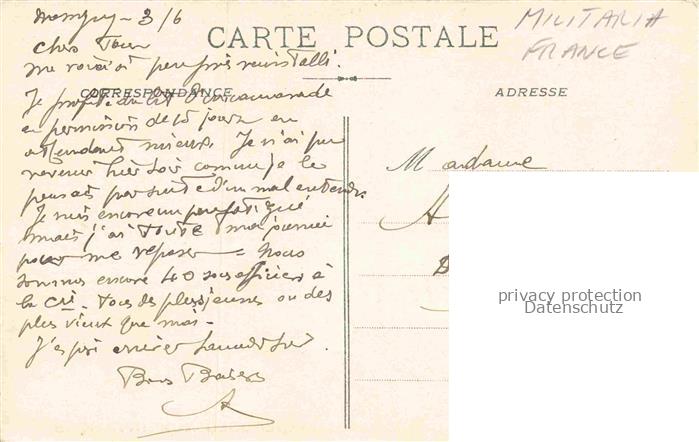 3/6
Chers Tous
CARTE POSTALE
MILITARIA
FRANCE
me voici à peu près réinstallé.
CORRESPONDANCE
ADRESSE
Je profite du lit d'un camarade
en permission de 15 jours en
attendant mieux. Je n'ai pu
revenir hier soir comme je le
pensais par suite d'un malentendu.
Je suis encore un peu fatigué
mais j'ai toute ma journée
pour me reposer - Nous
sommes encore 40 sous officiers à
la Cie - tous des plus jeunes ou des
plus vieux que moi -
J'espère arriver Samedi soir.
Bons Baisers
A
Madame
privacy protection
Datenschutz